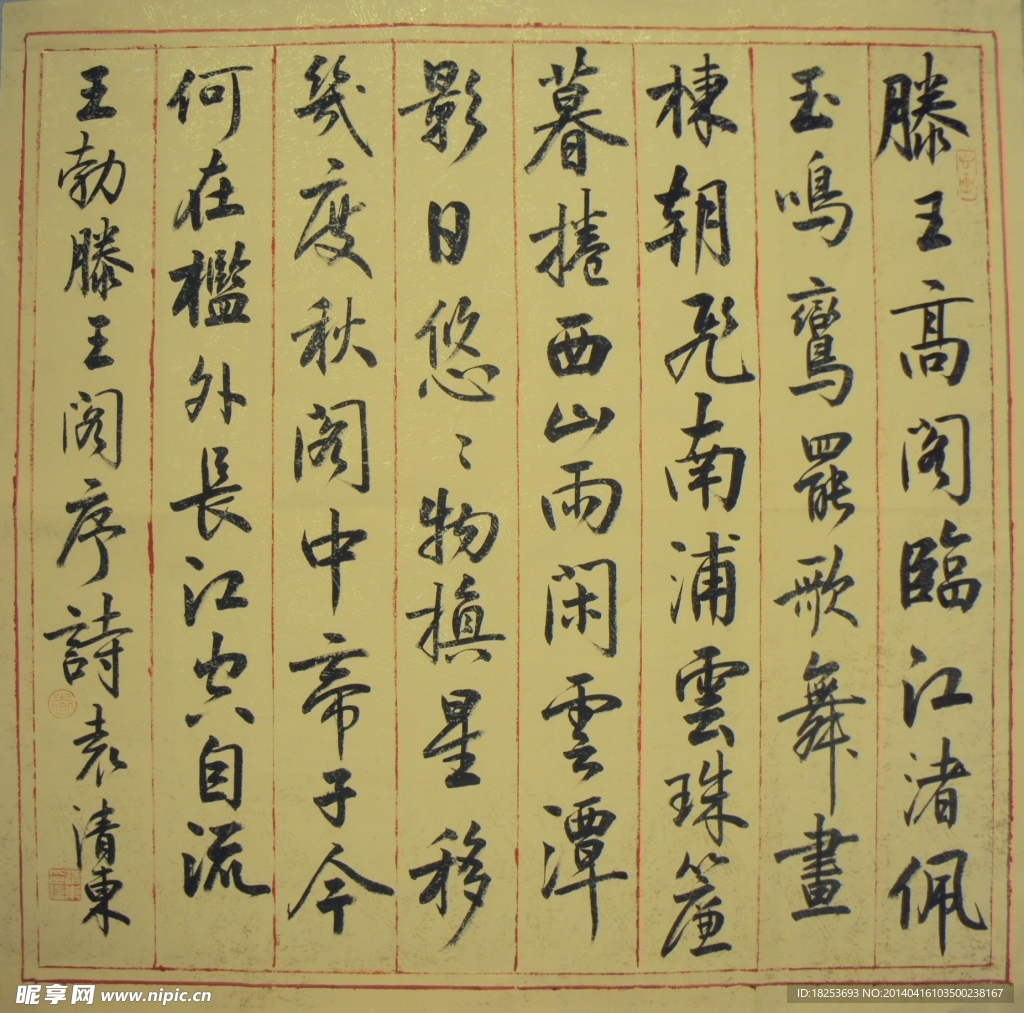 滕王高閣臨江渚佩
玉鳴鸞罷歌舞畫
棟朝飛南浦雲珠簾
暮捲西山雨閑雲潭
影日悠々物換星移
幾度秋閣中帝子今
何在檻外長江空自流
王勃滕王閣序詩袁清東
昵享网 www.nipic.cn
ID:18253693 NO:20140416103500238167